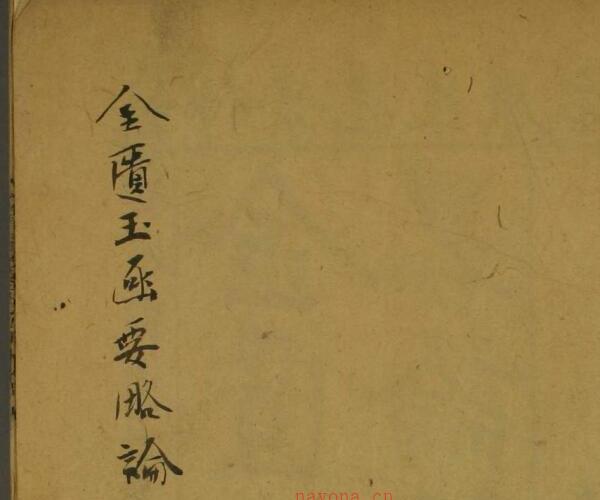 金匱玉函要略論
nayona.cn